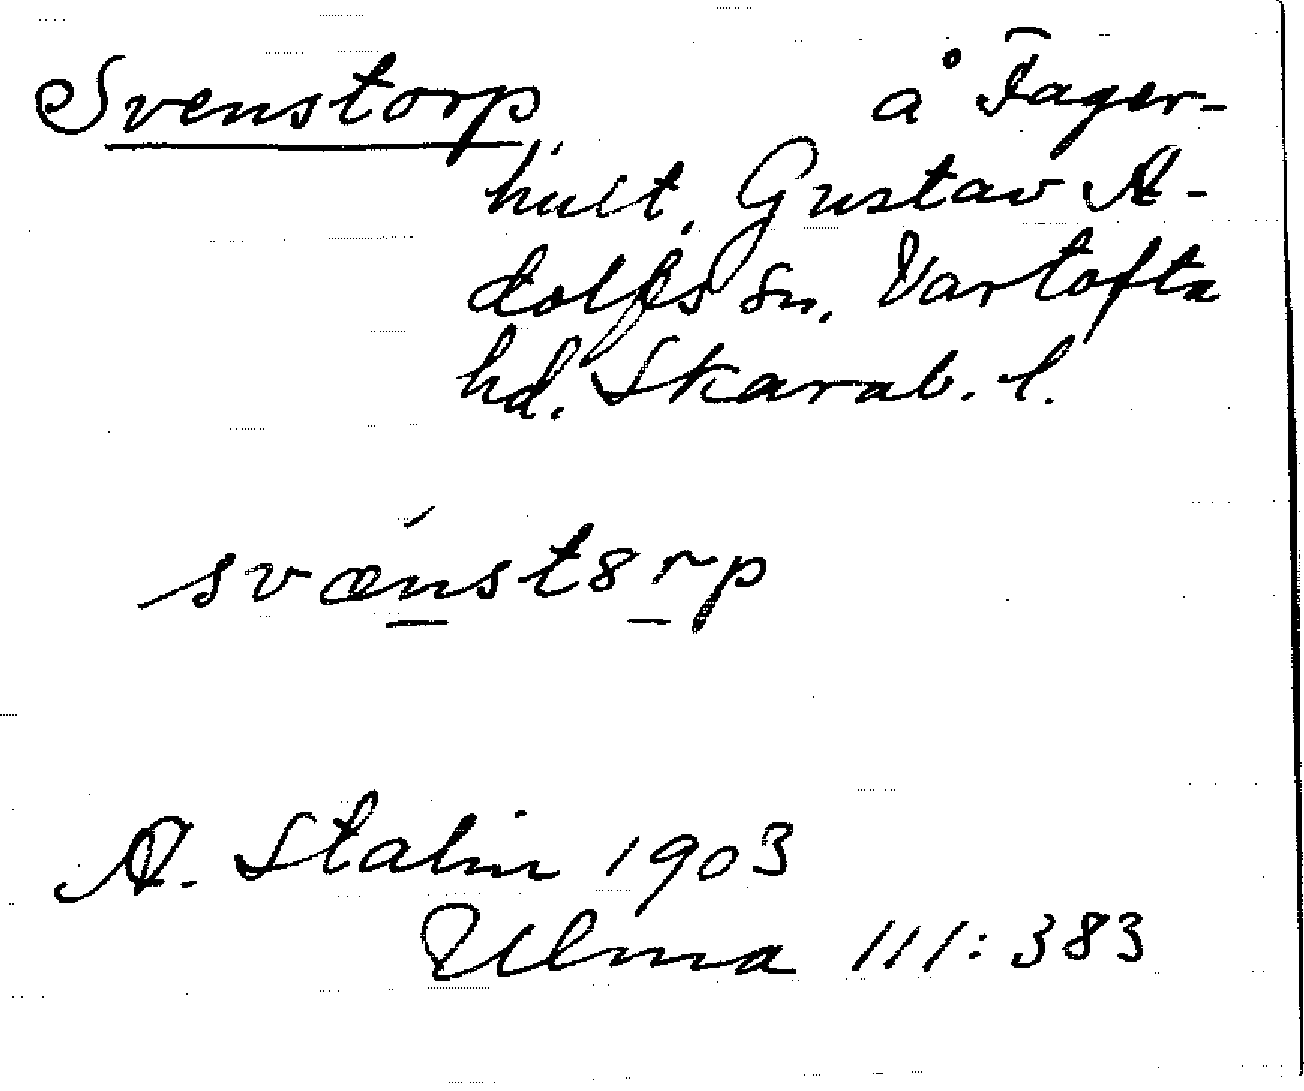 Svenstorp å Fager-
hult, Gustav A-
dolfs sn, Vartofta
hd. Skarab. l.
svǽnst8rp
A. Stalin 1903
Ulma 111:383